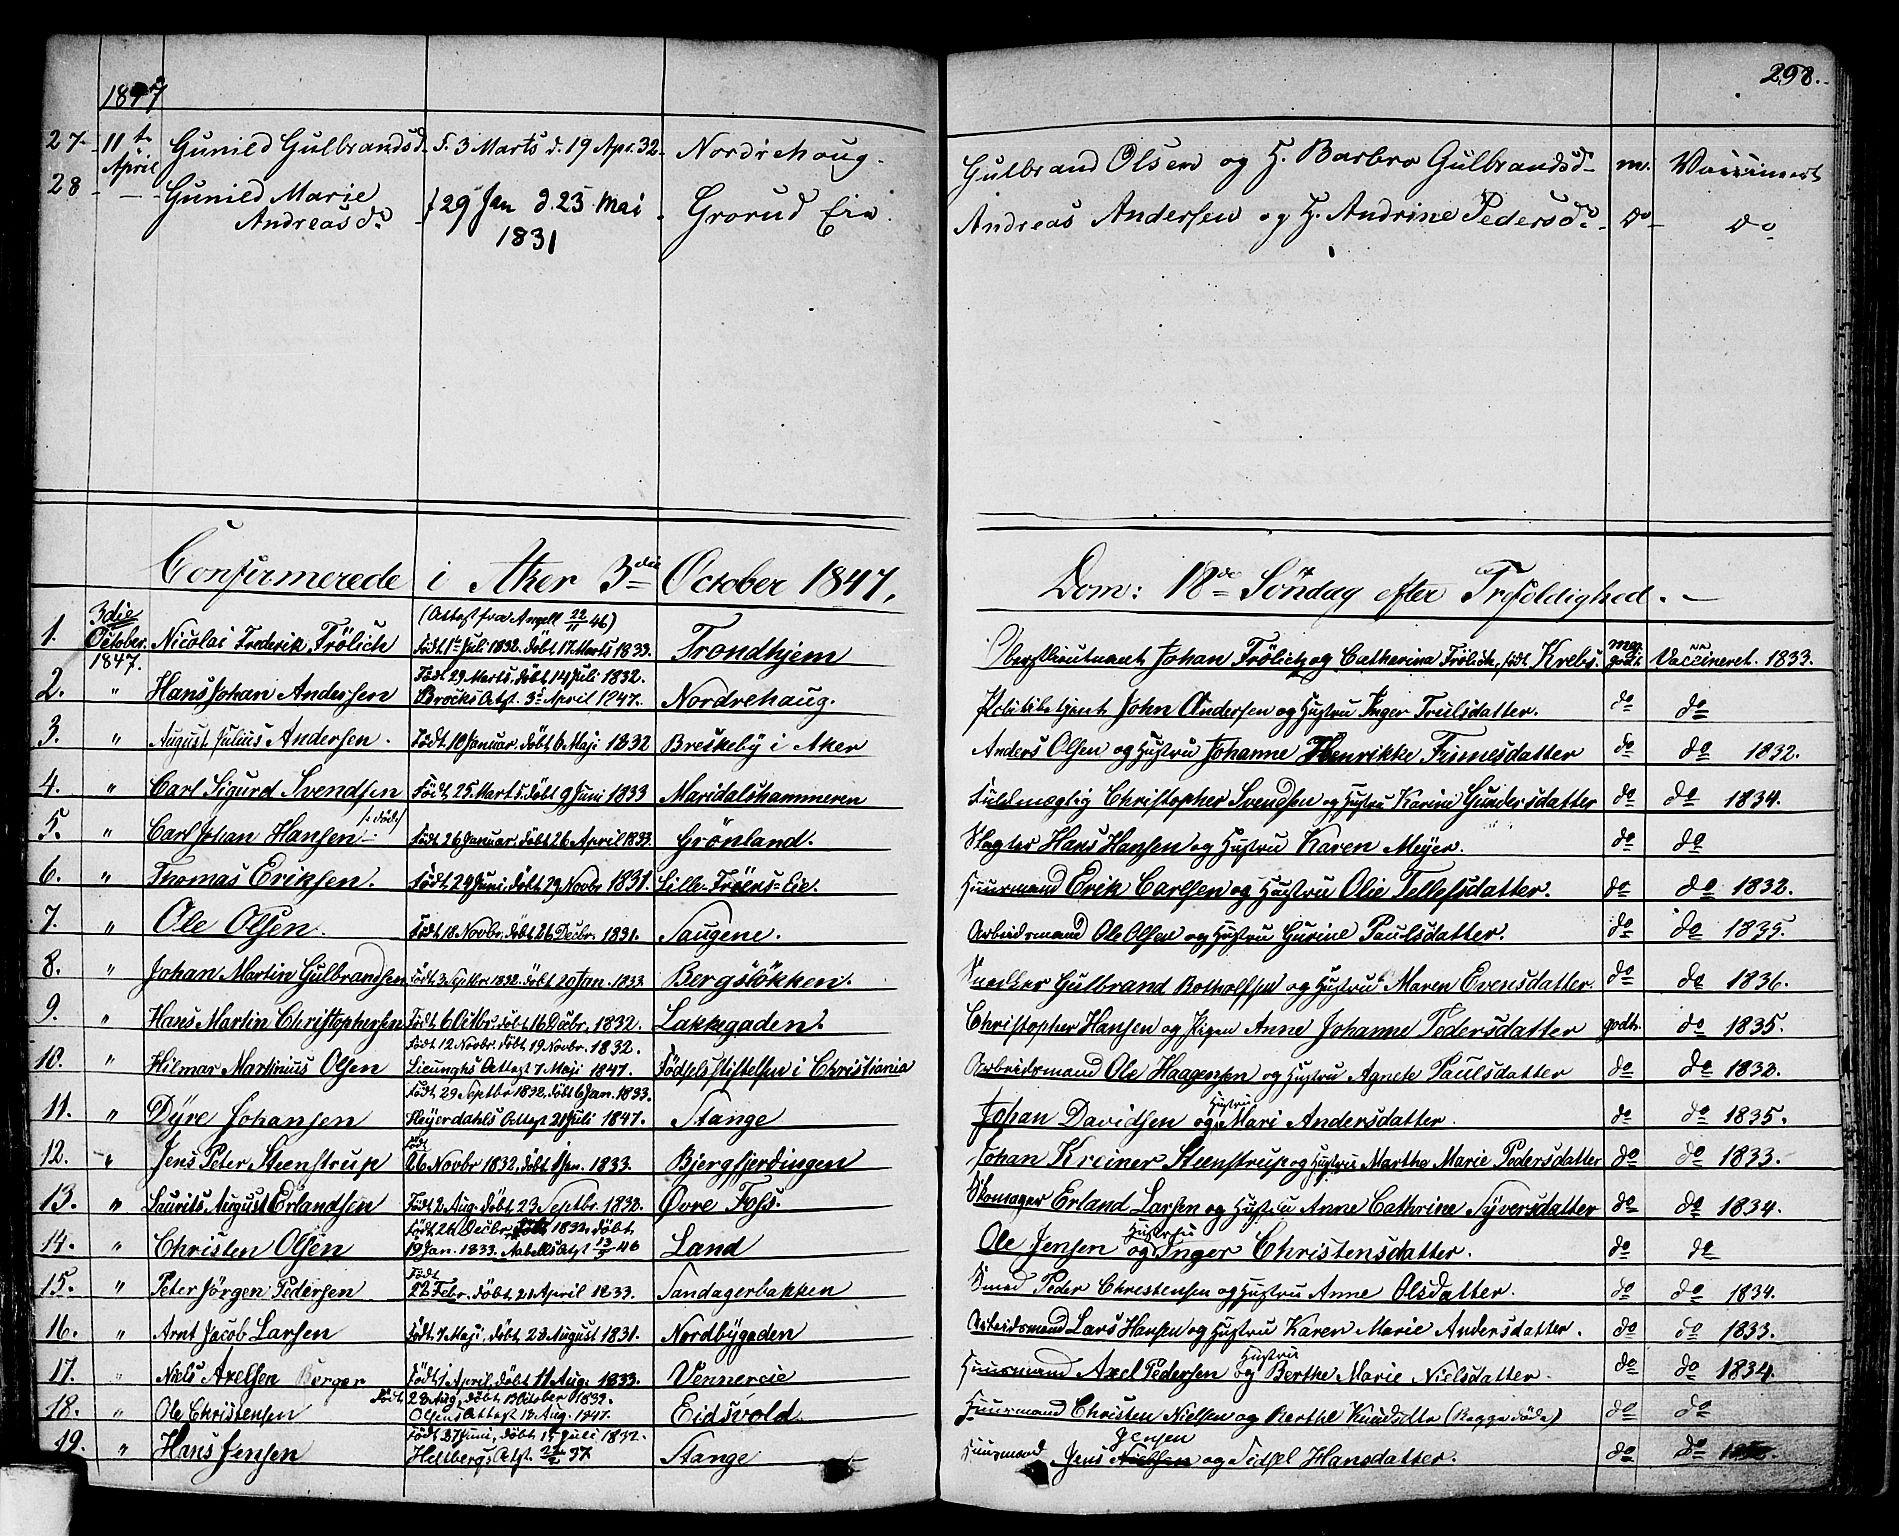 298.
1847
27. 11te April Gunild Gulbrandsd. f. 3 Marts d. 19 Apr. 32. Nordrehaug. Gulbrand Olsen og H. Barbro Gulbrandsd. m. Vaccinert
28 — Gunild Marie Andreasdr. f 29 Jan d. 23 Mai 1831 Grorud Eie. Andreas Andersen og H. Andrine Pedersdr. do do
Confirmerede i Aker 3die October 1847. Dom: 18de Söndag efter Trefoldighed.
1. 3die October 1847. Nicolai Frederik Frölich (Attest fra Angell 22/11 46) Födt 1te Juli 1832. döbt 17 Marts 1833. Trondhjem Oberstlieutnant Johan Frölich og Catharina Frölich, födt Krebs. meg. godt. Vaccineret. 1833.
2. " Hans Johan Andersen Födt 29 Marts. döbt 14 Juli 1832. Brocks Attst. 3d April 1847. Nordrehaug. Politibetjent John Andersen og Hustru Inger Trulsdatter. do do
3. " August Julius Andersen. Födt 18 Januar. döbt 6 Maji 1832 Breskeby i Aker Anders Olsen og Hustru Johanne Henrikke Finnesdatter do do 1832.
4. " Carl Sigurd Svendsen Födt 25 Marts. döbt 9 Juni 1833 Maridalshammeren Fuldmægtig Christopher Svendsen og Hustru Karine Gundersdatter do do 1834.
5. " Carl Johan Hansen Födt 26 Januar. döbt 26 April 1833. Grönland. Slagter Hans Hansen og Hustru Karen Meyer. do do
6. " Thomas Eriksen. Födt 29 Juni, döbt 29 Novbr 1831. Lille-Fröens-Eie. Huusmand Erik Carlsen og Hustru Olie Tellefsdatter. do do 1832.
7. " Ole Olsen. Födt 18 Novbr. döbt 26 Decbr. 1831. Saugene. Arbeidsmand Ole Olsen og Hustru Gurine Paulsdatter. do do 1835.
8. " Johan Martin Gulbrandsen Födt 3 Septbr. 1832. döbt 20 Jan. 1833 Bergslökken. Snedker Gulbrand Botholfsen og Hustru Maren Evensdatter. do do 1836.
9. " Hans Martin Christophersen Födt 6 Octbr. döbt 16 Decbr. 1832. Lakkegaden. Christopher Hansen og Pigen Anne Johanne Pedersdatter godt. do 1835.
10. " Hilmar Martinius Olsen Födt 12 Novbr. döbt 19 Novbr. 1832. Attest 7 Maji 1847. Födselsstiftelsen i Christiania Arbeidsmand Ole Haagensen og Hustru Agnete Paulsdatter do do 1832.
11. " Dyre Johansen Födt 29 Septbr 1832. döbt 6 Jan. 1833. Heyerdahls Attest 21 Juli 1847. Stange Johan Davidsen og Hustru Mari Andersdatter. do do 1835.
12. " Jens Peter Steenstrup Födt 26 Novbr 1832, döbt 1 Jan. 1833. Bjergfjerdingen Johan Kreiner Steenstrup og Hustru Marthe Marie Pedersdatter do do 1833.
13. " Laurits August Erlandsen Födt 2 Aug. döbt 23 Septbr. 1832. Övre Foss. Skomager Erland Larsen og Hustru Anne Cathrine Syversdatter do do 1834.
14. " Christen Olsen Födt 26 Decbr. 1832. döbt 19 Jan. 1833. Aabells Attst 13/5 46 Land Ole Jensen og Hustru Inger Christensdatter. do do
15. " Peter Jörgen Pedersen Födt 22 Febr. döbt 21 April 1833. Sandagerbakken Smed Peder Christensen og Hustru Anne Olsdatter. do do 1834.
16. " Arnt Jacob Larsen Födt 7 Maji, döbt 28 August 1831. Nordbygaden Arbeidsmand Lars Hansen og Hustru Karen Marie Andersdatter. do do 1833.
17. " Niels Axelsen Berger Födt 1 April, döbt 11 Aug. 1833. Vennereie Huusmand Axel Pedersen og Hustru Berthe Marie Nielsdatter. do do 1834.
18. " Ole Christensen Födt 28 Aug, döbt 13 October 1832. Olsens Attest 12 Aug. 1847. Eidsvold Huusmand Christen Nielsen og Berthe Knudsdtr (Begge döde) do do
19. " Hans Jensen Födt 27 Juni, döbt 15 Juli 1832. Heltbergs Attst. Stange Huusmand Jens Nielsen Jensen og Sidsel Hansdatter. do do